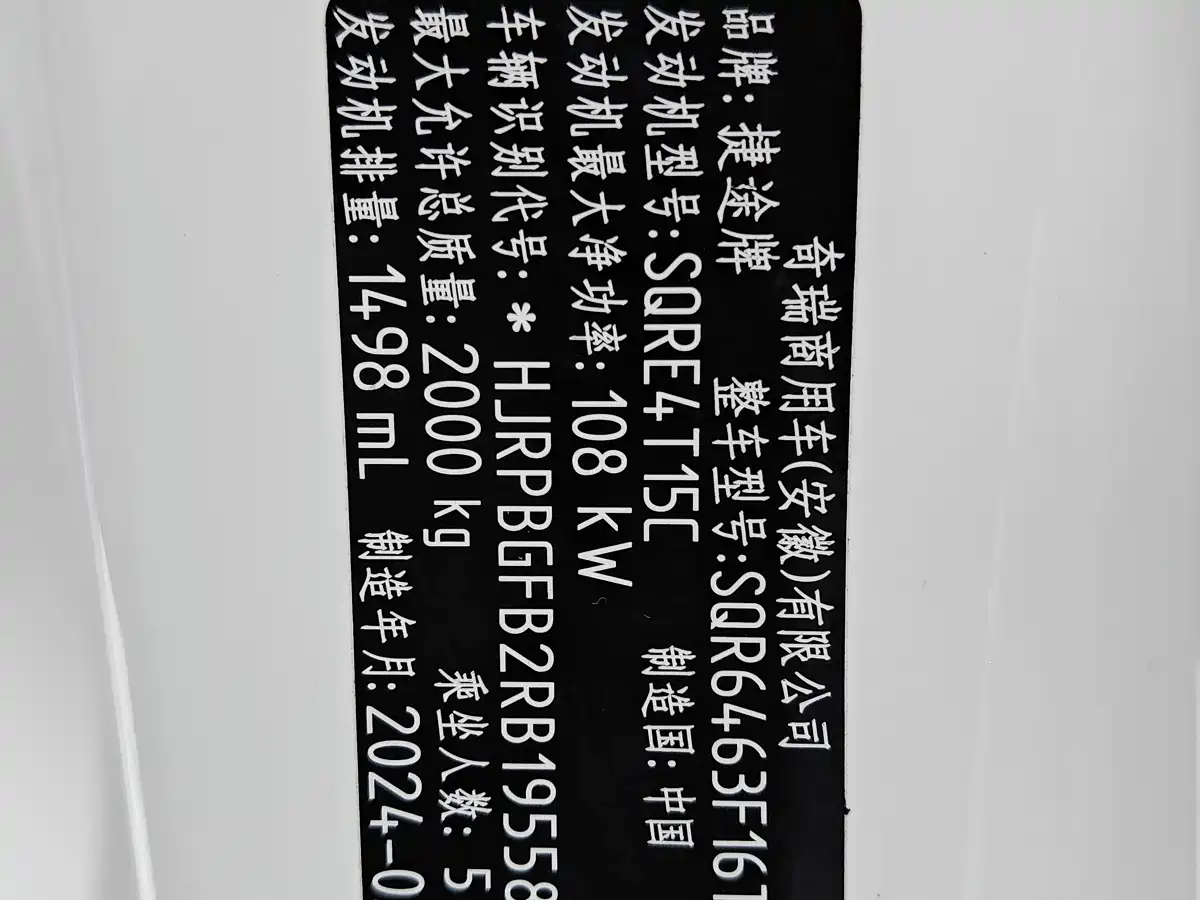 奇瑞商用车(安徽)有限公司
品牌: 捷途牌 整车型号:SQR6463F161
发动机型号:SQRE4T15C 制造国: 中国
发动机最大净功率: 108 kW
车辆识别代号: * HJRPBGFB2RB19558
最大允许总质量: 2000 kg 乘坐人数: 5
发动机排量: 1498 mL 制造年月: 2024-0